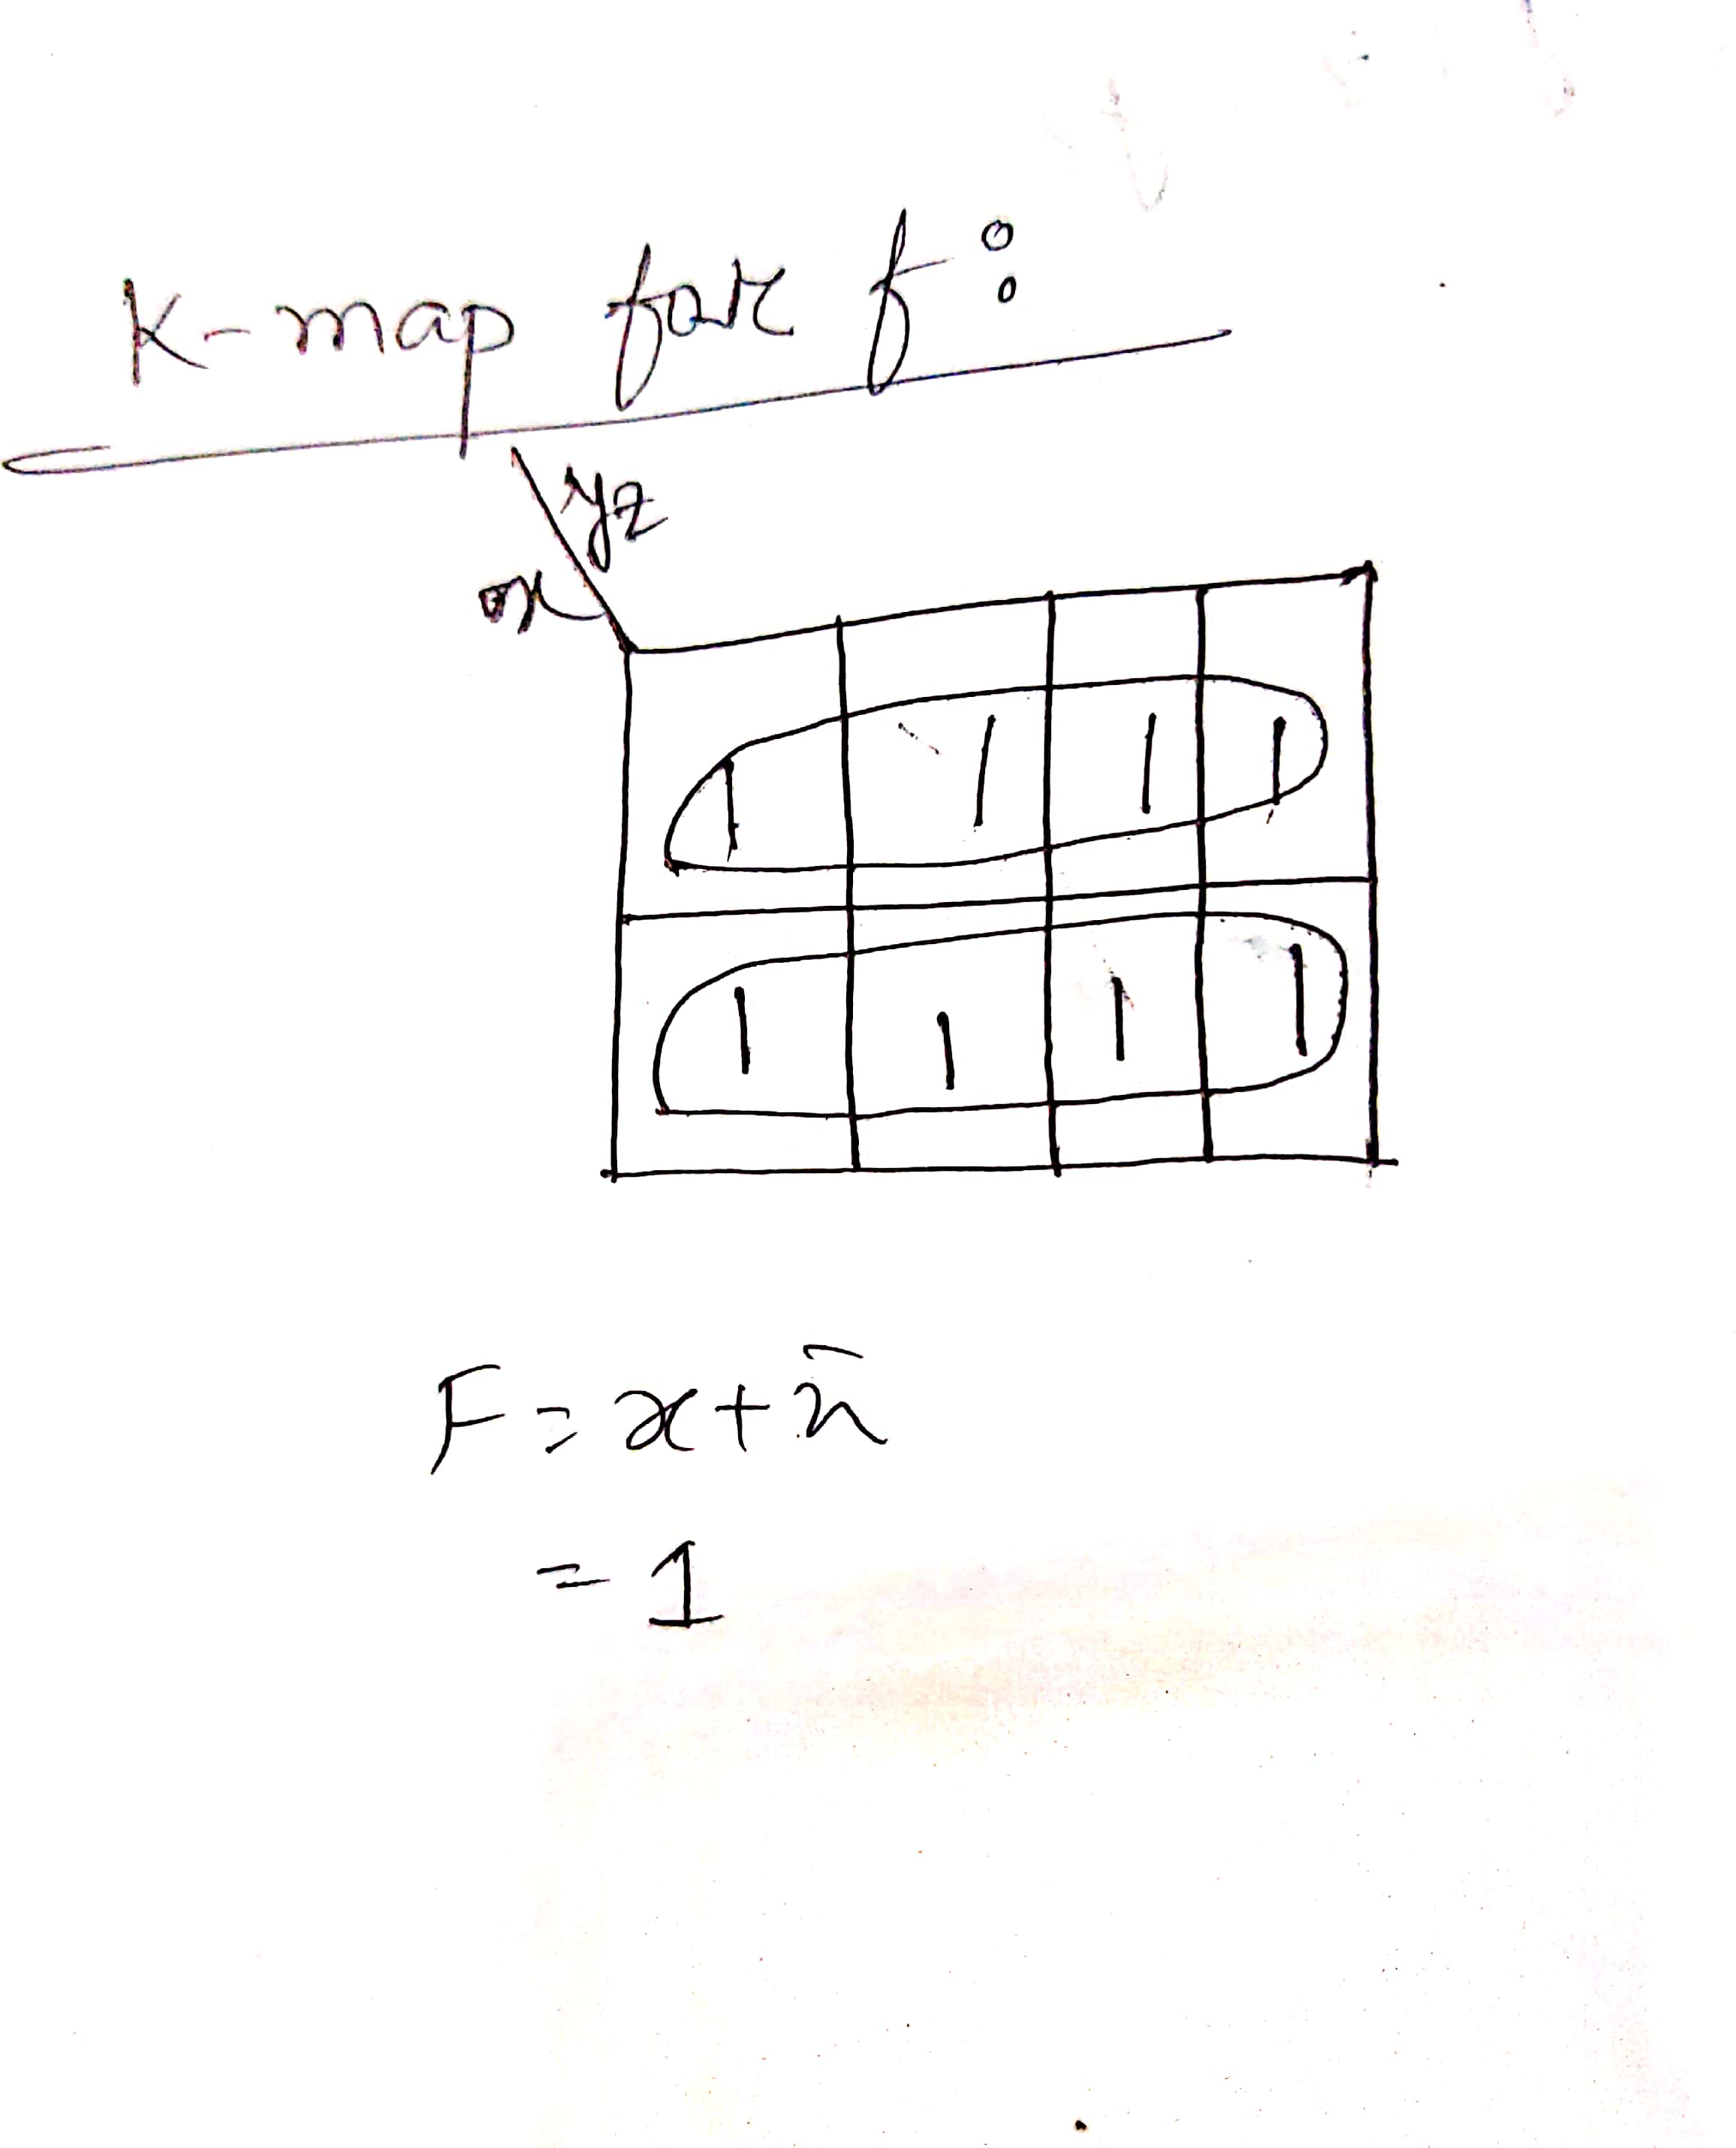 K-map for f:
yz
x
1 1 1 1
1 1 1 1
F = x + x̄
= 1